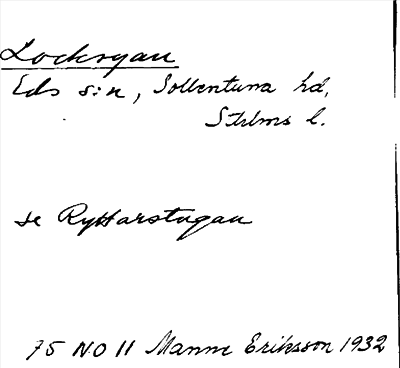 Lockryau
Eds s:n, Sollentuna hd,
Sthlms l.
se Ryttarstugan
75 NO 11 Manne Eriksson 1932